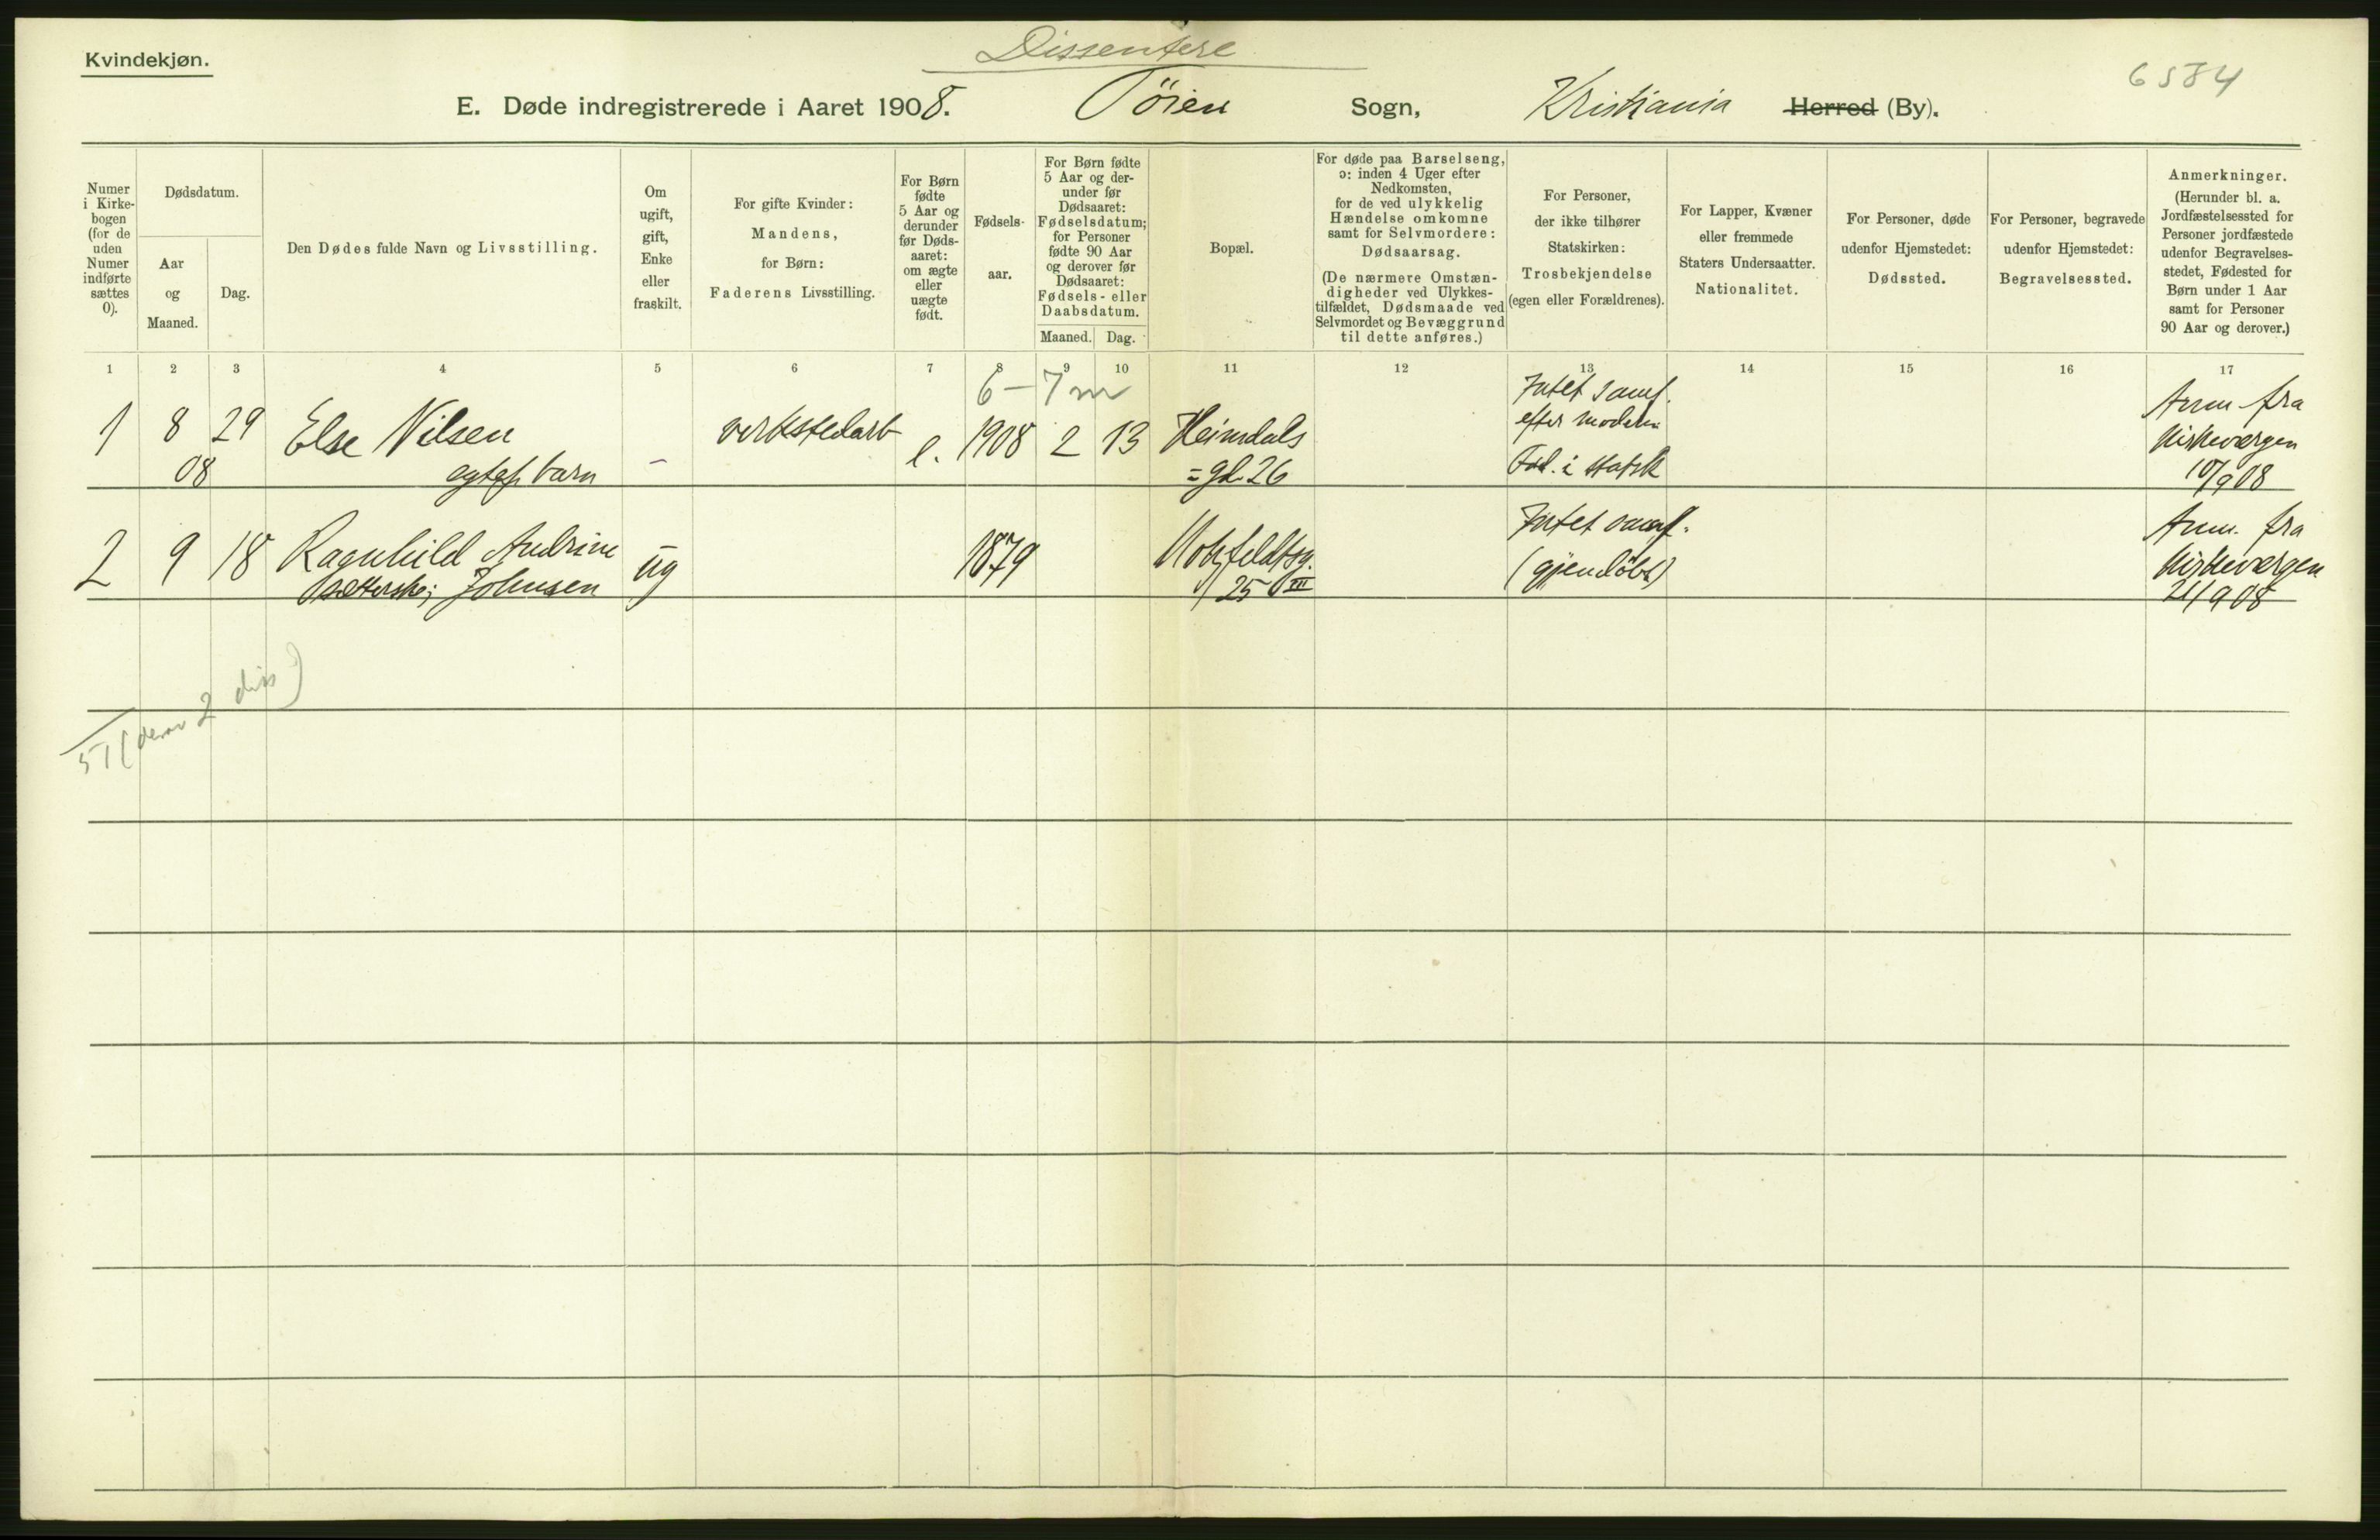 Kvindekjøn.
Dissentere
6584
E. Døde indregistrerede i Aaret 1908. Töien Sogn, Kristiania Herred (By).
Numer
i Kirke-
bogen
(for de
uden
Numer
indførte
sættes
0).
Dødsdatum.
Aar
og
Maaned.
Dag.
Den Dødes fulde Navn og Livsstilling.
Om
ugift,
gift,
Enke
eller
fraskilt.
For gifte Kvinder:
Mandens,
for Børn:
Faderens Livsstilling.
For Børn
fødte
5 Aar og
derunder
før Døds-
aaret:
om ægte
eller
uægte
født.
Fødsels-
aar.
For Børn fødte
5 Aar og der-
under før
Dødsaaret:
Fødselsdatum;
for Personer
fødte 90 Aar
og derover før
Dødsaaret:
Fødsels- eller
Daabsdatum.
Maaned. Dag.
Bopæl.
For døde paa Barselseng,
ɔ: inden 4 Uger efter
Nedkomsten,
for de ved ulykkelig
Hændelse omkomne
samt for Selvmordere:
Dødsaarsag.
(De nærmere Omstæn-
digheder ved Ulykkes-
tilfældet, Dødsmaade ved
Selvmordet og Bevæggrund
til dette anføres.)
For Personer,
der ikke tilhører
Statskirken:
Trosbekjendelse
(egen eller Forældrenes).
For Lapper, Kvæner
eller fremmede
Staters Undersaatter.
Nationalitet.
For Personer, døde
udenfor Hjemstedet:
Dødssted.
For Personer, begravede
udenfor Hjemstedet:
Begravelsessted.
Anmerkninger.
(Herunder bl. a.
Jordfæstelsessted for
Personer jordfæstede
udenfor Begravelses-
stedet, Fødested for
Børn under 1 Aar
samt for Personer
90 Aar og derover.)
1 2 3 4 5 6 7 8 9 10 11 12 13 14 15 16 17
6-7 m
1 8 29 Else Nilsen - verkstedarb e. 1908 2 13 Heimdals
08 egtef. barn =gd. 26
Intet samf.
efter moderen
Fad. i statsk
Anm. fra
Kirkeværgen
10/9 08
2 9 18 Ragnhild Andrine ug 1879
Johnsen
25 III
Intet samf.
(gjendöbt)
Anm. fra
Kirkeværgen
21/9 08
57 (derav 2 diss)